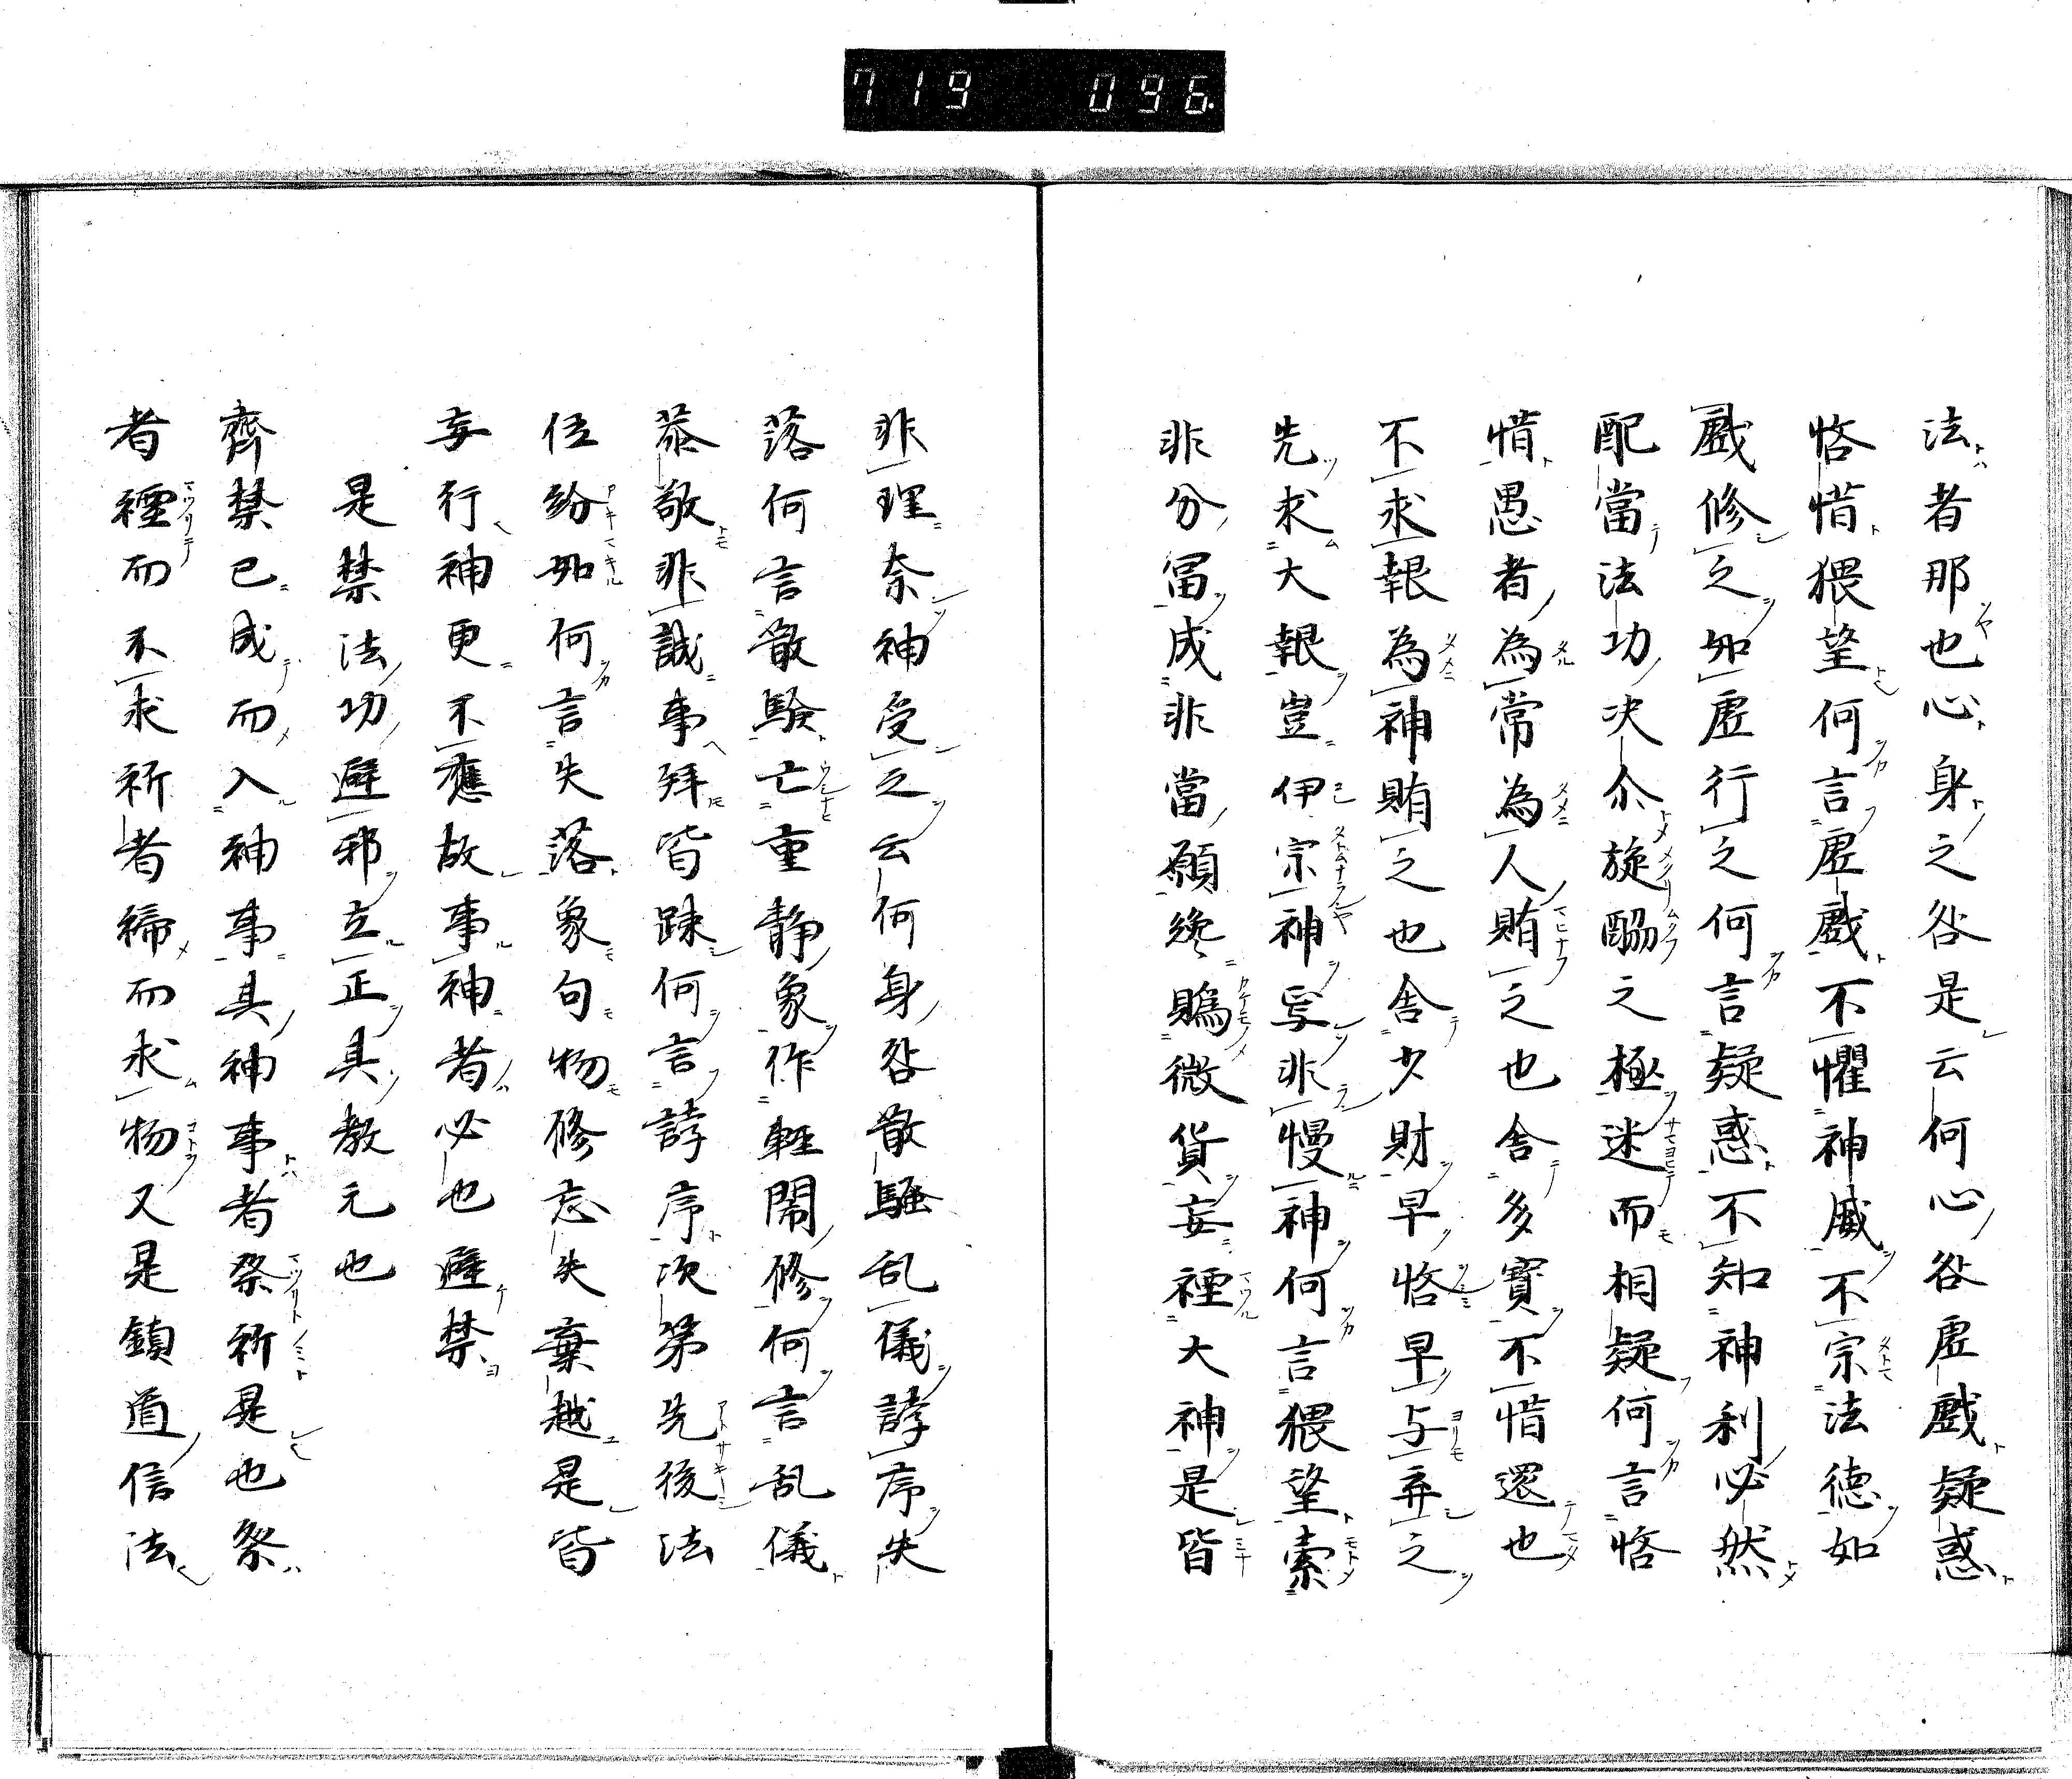 719 096
法者那也心身之咎是云何心咎虛戲疑惑
悋惜猥望何言虛戲不懼神威不宗法德如
戲修之如虛行之何言疑惑不知神利必然
配當法功决尒旋酬之極迷而相疑何言悋
惜愚者為常為人賄之也舍多寶不惜還也
不求報為神賄之也舍少財早悋早与弃之
先求大報豈伊宗神乎非慢神何言猥望索
非分冨成非當願纔賜微貨妄禋大神是皆
非理奈神受之云何身咎散騷乱儀誖序失
落何言散騷亡重静象作輕閙修何言乱儀
恭敬非誠事拜皆踈何言誖序次第先後法
位紛如何言失落象句物修忘失棄越是皆
妄行神更不應故事神者必也避禁
是禁法功避邪立正具教元也
齊禁已成而入神事具神事者祭祈是也祭
者禋而不求祈者締而求物又是鎮道信法